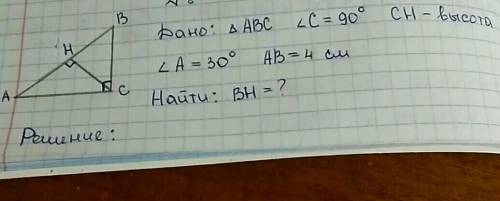 B
H
A
C
Дано: △ ABC ∠C = 90° CH – высота
∠A = 30° AB = 4 см
Найти: BH = ?
Решение: